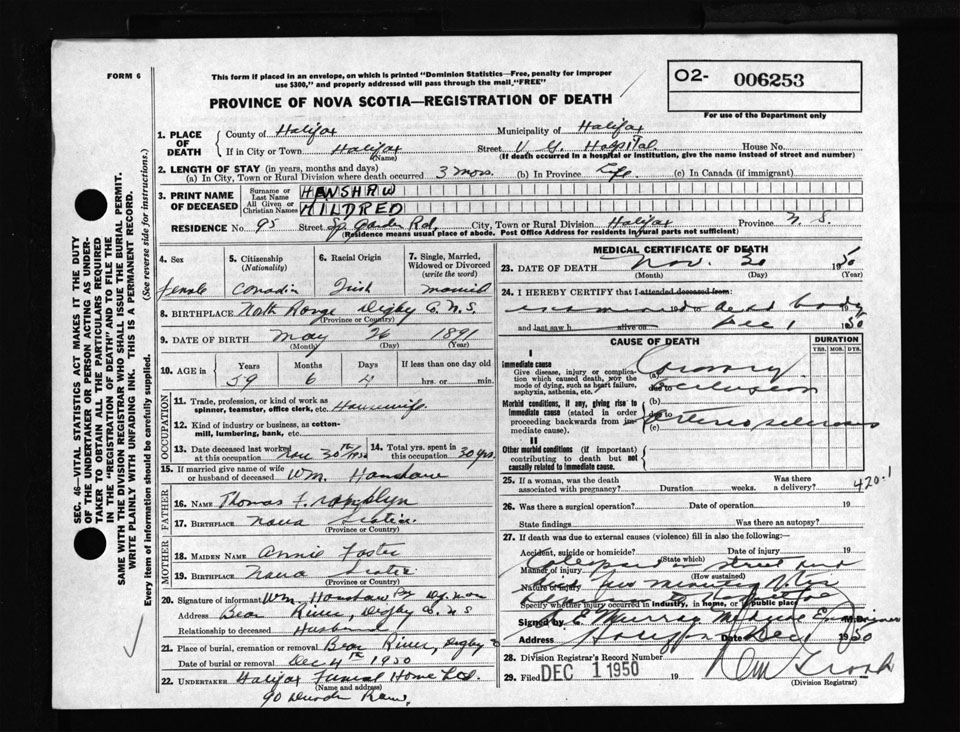 FORM 6
This form if placed in an envelope, on which is printed "Dominion Statistics—Free, penalty for improper
use $300," and properly addressed will pass through the mail, "FREE"
02- 006253
For use of the Department only
PROVINCE OF NOVA SCOTIA—REGISTRATION OF DEATH
SEC. 46—VITAL STATISTICS ACT MAKES IT THE DUTY
OF THE UNDERTAKER OR PERSON ACTING AS UNDER-
TAKER TO OBTAIN ALL THE PARTICULARS REQUIRED
IN THE "REGISTRATION OF DEATH" AND TO FILE THE
SAME WITH THE DIVISION REGISTRAR WHO SHALL ISSUE THE BURIAL PERMIT.
WRITE PLAINLY WITH UNFADING INK. THIS IS A PERMANENT RECORD.
Every item of information should be carefully supplied. (See reverse side for instructions.)
1. PLACE OF DEATH County of Halifax Municipality of Halifax
If in City or Town Halifax (Name) Street V. G. Hospital House No.
(If death occurred in a hospital or institution, give the name instead of street and number)
2. LENGTH OF STAY (in years, months and days)
(a) In City, Town or Rural Division where death occurred 3 mos. (b) In Province Life (c) In Canada (if immigrant)
3. PRINT NAME OF DECEASED Surname or Last Name HENSHAW
All Given or Christian Names MILDRED
RESIDENCE No. 95 Street Sp. Garden Rd. City, Town or Rural Division Halifax Province N. S.
(Residence means usual place of abode. Post Office Address for residents in rural parts not sufficient)
4. Sex female
5. Citizenship (Nationality) Canadian
6. Racial Origin Irish
7. Single, Married, Widowed or Divorced (write the word) married
8. BIRTHPLACE North Range Digby C. N.S.
(Province or Country)
9. DATE OF BIRTH May 26 1891
(Month) (Day) (Year)
10. AGE in Years 59 Months 6 Days 4 If less than one day old hrs. or min.
OCCUPATION
11. Trade, profession, or kind of work as
spinner, teamster, office clerk, etc. Housewife
12. Kind of industry or business, as cotton-
mill, lumbering, bank, etc.
13. Date deceased last worked at this occupation Nov 30th 1950
14. Total yrs. spent in this occupation 30 yrs.
15. If married give name of wife
or husband of deceased Wm. Henshaw
FATHER
16. NAME Thomas Franklyn
17. BIRTHPLACE Nova Scotia
(Province or Country)
MOTHER
18. MAIDEN NAME Annie Foster
19. BIRTHPLACE Nova Scotia
(Province or Country)
20. Signature of informant Wm Henshaw
Address Bear River, Digby C. N S
Relationship to deceased Husband
21. Place of burial, cremation or removal Bear River, Digby
Date of burial or removal Dec 4th 1950
22. UNDERTAKER Halifax Funeral Home Ltd.
(Name and address)
90
MEDICAL CERTIFICATE OF DEATH
23. DATE OF DEATH Nov. 30 1950
(Month) (Day) (Year)
24. I HEREBY CERTIFY that I attended deceased from:
examined dead body 19
and last saw h alive on Dec 1 1950
CAUSE OF DEATH
DURATION
YRS. MOS. DYS.
I
Immediate cause
Give disease, injury or complica-
tion which caused death, not the
mode of dying, such as heart failure,
asphyxia, asthenia, etc.
(a) Coronary
due to occlusion
Morbid conditions, if any, giving rise to
immediate cause (stated in order
proceeding backwards from im-
mediate cause).
(b)
due to
(c) arteriosclerosis
II
Other morbid conditions (if important)
contributing to death but not
causally related to immediate cause.
420.1
25. If a woman, was the death associated with pregnancy? Duration weeks. Was there a delivery?
26. Was there a surgical operation? Date of operation 19
State findings Was there an autopsy?
27. If death was due to external causes (violence) fill in also the following:
Accident, suicide or homicide? Date of injury 19
(State which)
Manner of injury collapsed in street and
(How sustained)
Nature of injury died few minutes after
Specify whether injury occurred in industry, in home, or in public place
Signed by Murray Medical Examiner
Address Halifax Date Dec 1 1950
28. Division Registrar's Record Number
29. Filed DEC 1 1950 19
(Division Registrar)